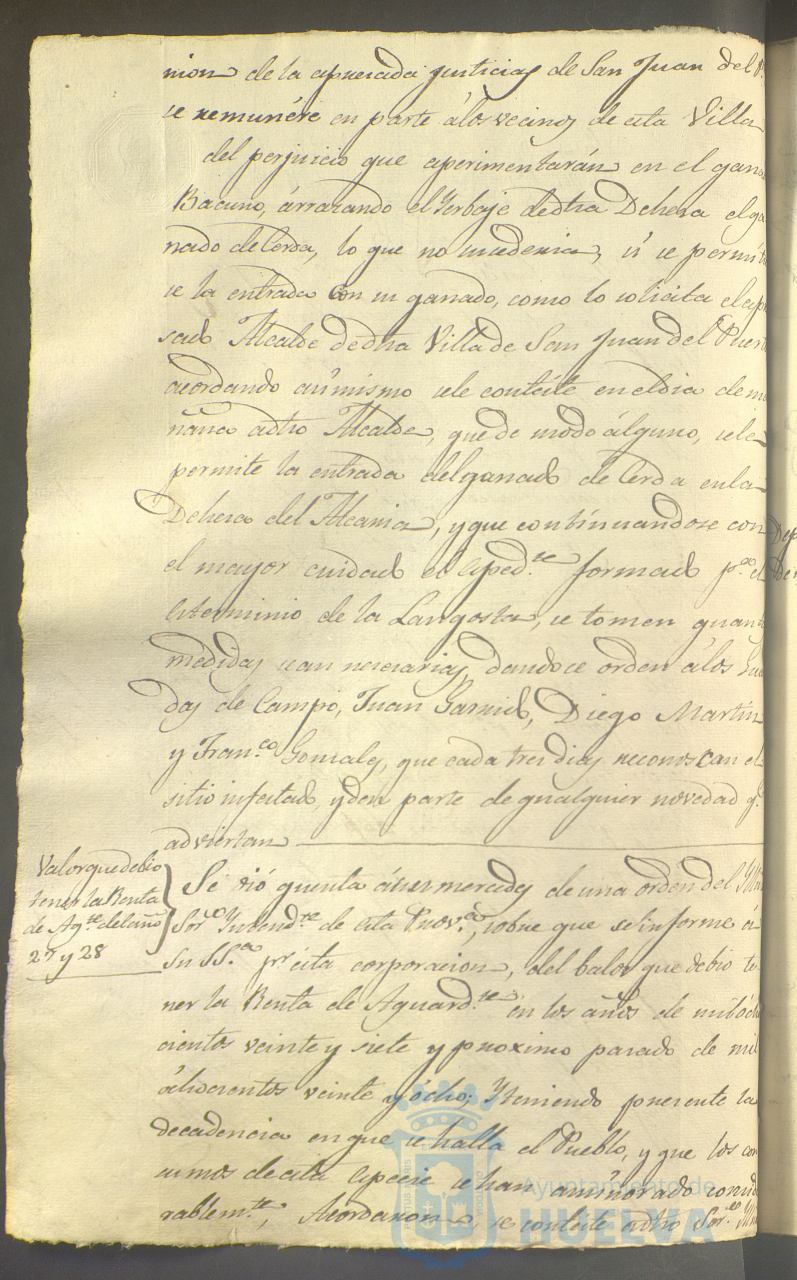 nion de la apresada justicia de San Juan del P.
se remunére en parte álos vecinos de esta Villa
del perjuicio que esperimentarán en el gana
Bacuno, árrazando el Yerbaje de dha Dehesa el ga
nado de Cerda, lo que no sucederia, si se permiti
se la entrada con su ganado, como lo solicita el apre
sado Alcalde de dha Villa de San Juan del Puerto
acordando asímismo sele conteste en el dia de ma
ñana adho Alcalde, que de modo álguno, sele
permite la entrada del ganado de Cerda en la
Dehesa del Alcania, y que continuandose con
el mayor cuidado el Esped.te formado p.a el
Esterminio de la Langosta, se tomen quantas
medidas sean necesarias, dandoce orden álos Gua
das de Campo, Juan Garrido, Diego Martin
y Fran.co Gonzalez, que cada tres dias reconoscan el
sitio infestado, y den parte de qualquier novedad q.e
adviertan
Valor que debio
tener la Renta
de Ag.te del año
27 y 28
Se vió quenta ásus mercedes de una orden del Ylt
Sor. Yntend.te de esta Prov.ca, sobre que se informe á
Su SS.ca pr. esta corporacion, del balor que debio te
ner la Renta de Aguard.te en los años de mil óch
cientos veinte y siete y proximo pasado de mil
óchocientos veinte y ócho; Yteniendo presente la
decadencia en que se halla el Pueblo, y que los con
sumos de esta Especie se han aminorado consid
rablem.te, Acordaron, se conteste adho Sor.
Ayuntamiento de
HUELVA